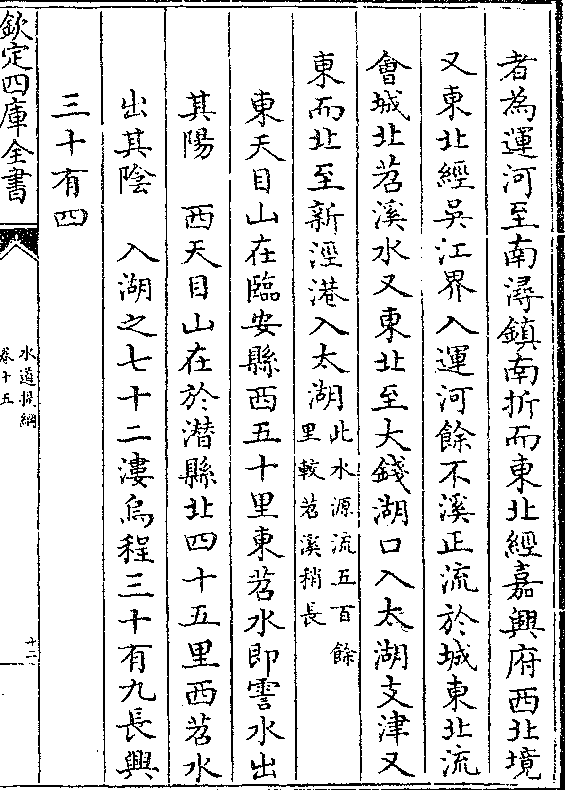 者為運河至南潯鎮南折而東北經嘉興府西北境
又東北經吳江界入運河餘不溪正流於城東北流
會城北苕溪水又東北至大錢湖口入太湖支津又
東而北至新涇港入太湖此水源流五百餘
里較苕溪稍長
東天目山在臨安縣西五十里東苕水即霅水出
其陽 西天目山在於潛縣北四十五里西苕水
出其陰 入湖之七十二漊烏程三十有九長興
三十有四
欽定四庫全書
水道提綱
卷十五
十二